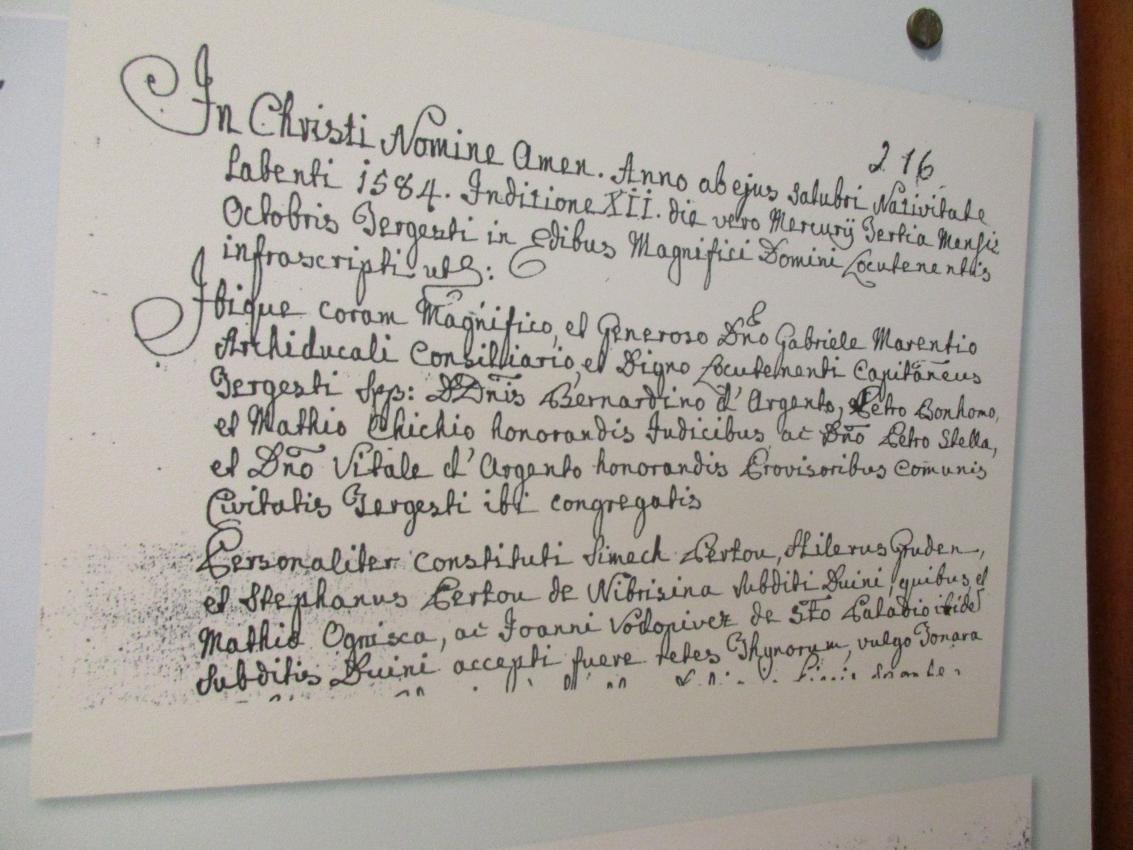 216
In Christi Nomine Amen. Anno ab ejus salubri Nativitate
Labenti 1584. Inditione XII. die vero Mercurij Tertia Mensis
Octobris Tergesti in Edibus Magnifici Domini Locutenentis
infrascripti
Ibique coram Magnifico, et Generoso Dño Gabriele Marentio
Archiducali Consilliario, et Digno Locutementi Capitãneus
Tergesti Spp: DDñis Bernardino d'Argento, Petro Bonhomo,
et Mathio Chichio honorandis Judicibus, ac Dño Petro Stella,
et Dño Vitale d'Argento honorandis Provisoribus Comunis
Civitatis Tergesti ibi congregatis
Personaliter Constituti Simech Pertou, Stilerus Gruden,
et Stephanus Pertou de Nibrisina Subditi Duini, quibus, et
Mathia Ognisca, ac Joanni Vodopivez de Sto Paladio ibide
Subditis Duini accepti fuere retes Thynorum, vulgo Tonara